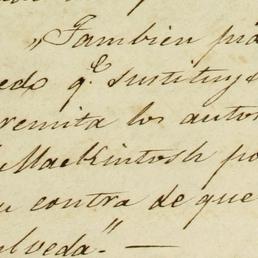 "Tambien pid
edo q.e sustituy
remita los autos
Mackintosh po
u contra de que
lveda." —